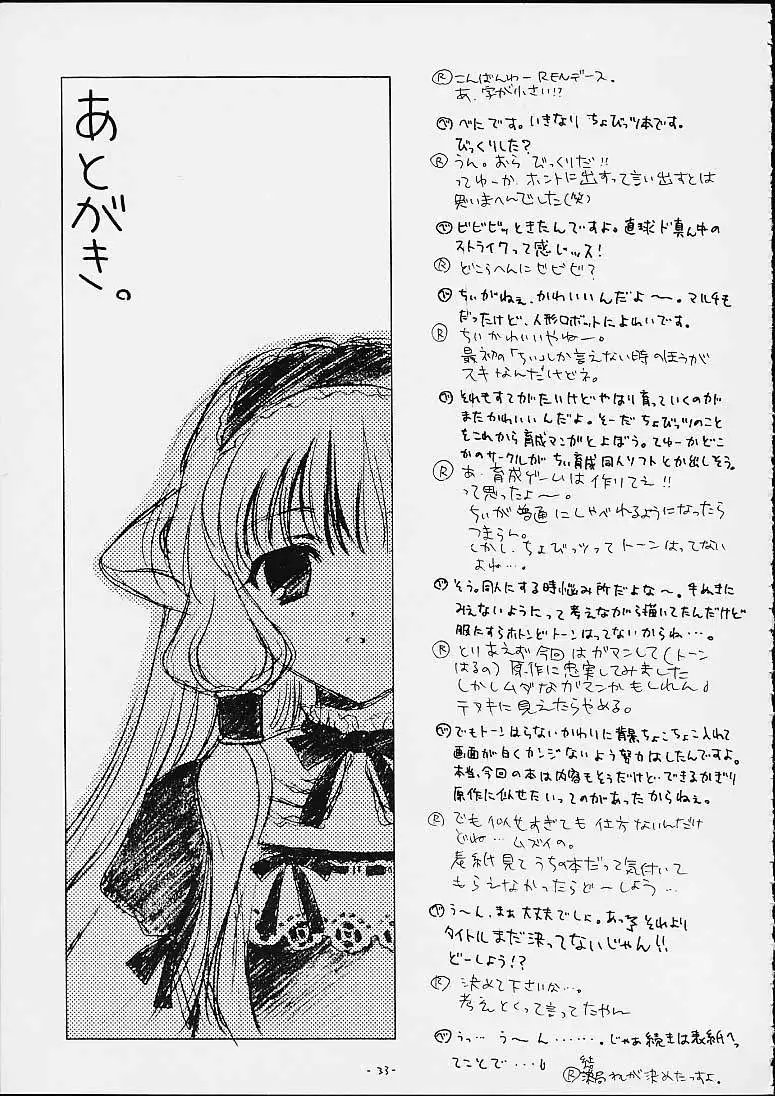 あとがき。
Ⓡ こんばんわー RENデース。
あ、字が小さい!?
べにです。いきなり ちょびっツ本です。
びっくりした?
Ⓡ うん。おら びっくりだ!!
ってゆーか、ホントに出すって言い出すとは
思いまへんでした(笑)
ビビビッときたんですよ。直球ド真ん中の
ストライクって感じッス!
Ⓡ どこらへんにビビビ?
ちぃがねぇ、かわいいんだよ〜。マルチも
だったけど、人形ロボットによわいです。
Ⓡ ちぃかわいいやねー。
最初の「ちぃ」しか言えない時のほうが
スキなんだけどネ。
それもすてがたいけどやはり育っていくのが
またかわいいんだよ。そーだちょびっツのこと
をこれから育成マンガとよぼう。てゆーかどこ
かのサークルがちぃ育成同人ソフトとか出しそう。
Ⓡ あ、育成ゲームは作りてぇ!!
って思ったよ〜。
ちぃが普通にしゃべれるようになったら
つまらん。
しかし、ちょびっツってトーンはってない
よね…。
そう。同人にする時悩み所だよな〜。手ぬきに
みえないようにって考えながら描いてたんだけど
服にすらホトンどトーンはってないからね…。
Ⓡ とりあえず今回はガマンして(トーン
はるの)原作に忠実してみました
しかしムダなガマンかもしれん。
テヌキに見えたらやめる。
でもトーンはらないかわいに背景ちょこちょこ入れて
画面が白くカンジないよう努力はしたんですよ。
本当、今回の本は内容もそうだけど…できるかぎり
原作に似せたいってのがあったからねぇ。
Ⓡ でも似せすぎても仕方ないんだけ
どね…ムズイの。
表紙見てうちの本だって気付いて
もらえなかったらどーしよう…
う〜ん、まぁ大丈夫でしょ。あっ それより
タイトルまだ決ってないじゃん!!
どーしよう!?
Ⓡ 決めて下さいな…。
考えとくって言ってたやん
うっ… う〜ん………。じゃあ続きは表紙へっ
てことで…
Ⓡ 結局 れんが決めたっすよ。
- 33 -